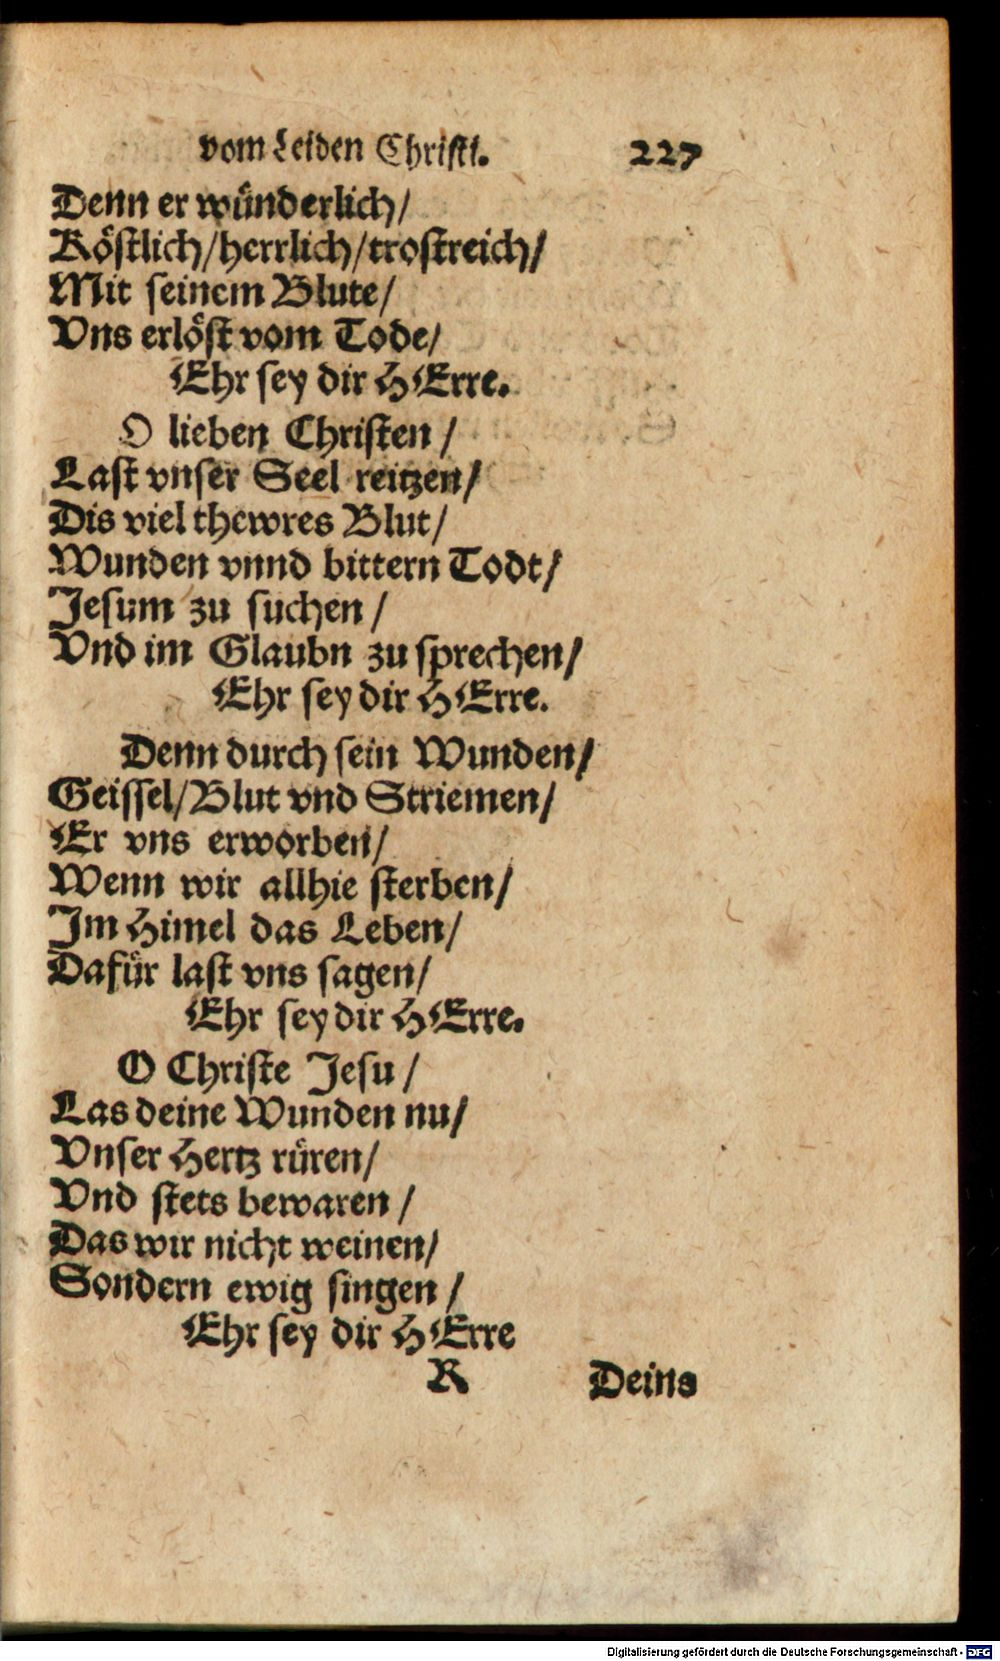 vom Leiden Christi. 227
Denn er wünderlich/
Köstlich/herrlich/trostreich/
Mit seinem Blute/
Vns erlöst vom Tode/
Ehr sey dir HErre.
O lieben Christen/
Last vnser Seel reitzen/
Dis viel thewres Blut/
Wunden vnnd bittern Todt/
Jesum zu suchen/
Vnd im Glaubn zu sprechen/
Ehr sey dir HErre.
Denn durch sein Wunden/
Geissel/Blut vnd Striemen/
Er vns erworben/
Wenn wir allhie sterben/
Im Himel das Leben/
Dafür last vns sagen/
Ehr sey dir HErre.
O Christe Jesu/
Las deine Wunden nu/
Vnser Hertz rüren/
Vnd stets bewaren/
Das wir nicht weinen/
Sondern ewig singen/
Ehr sey dir HErre
R Deins
Digitalisierung gefördert durch die Deutsche Forschungsgemeinschaft - DFG